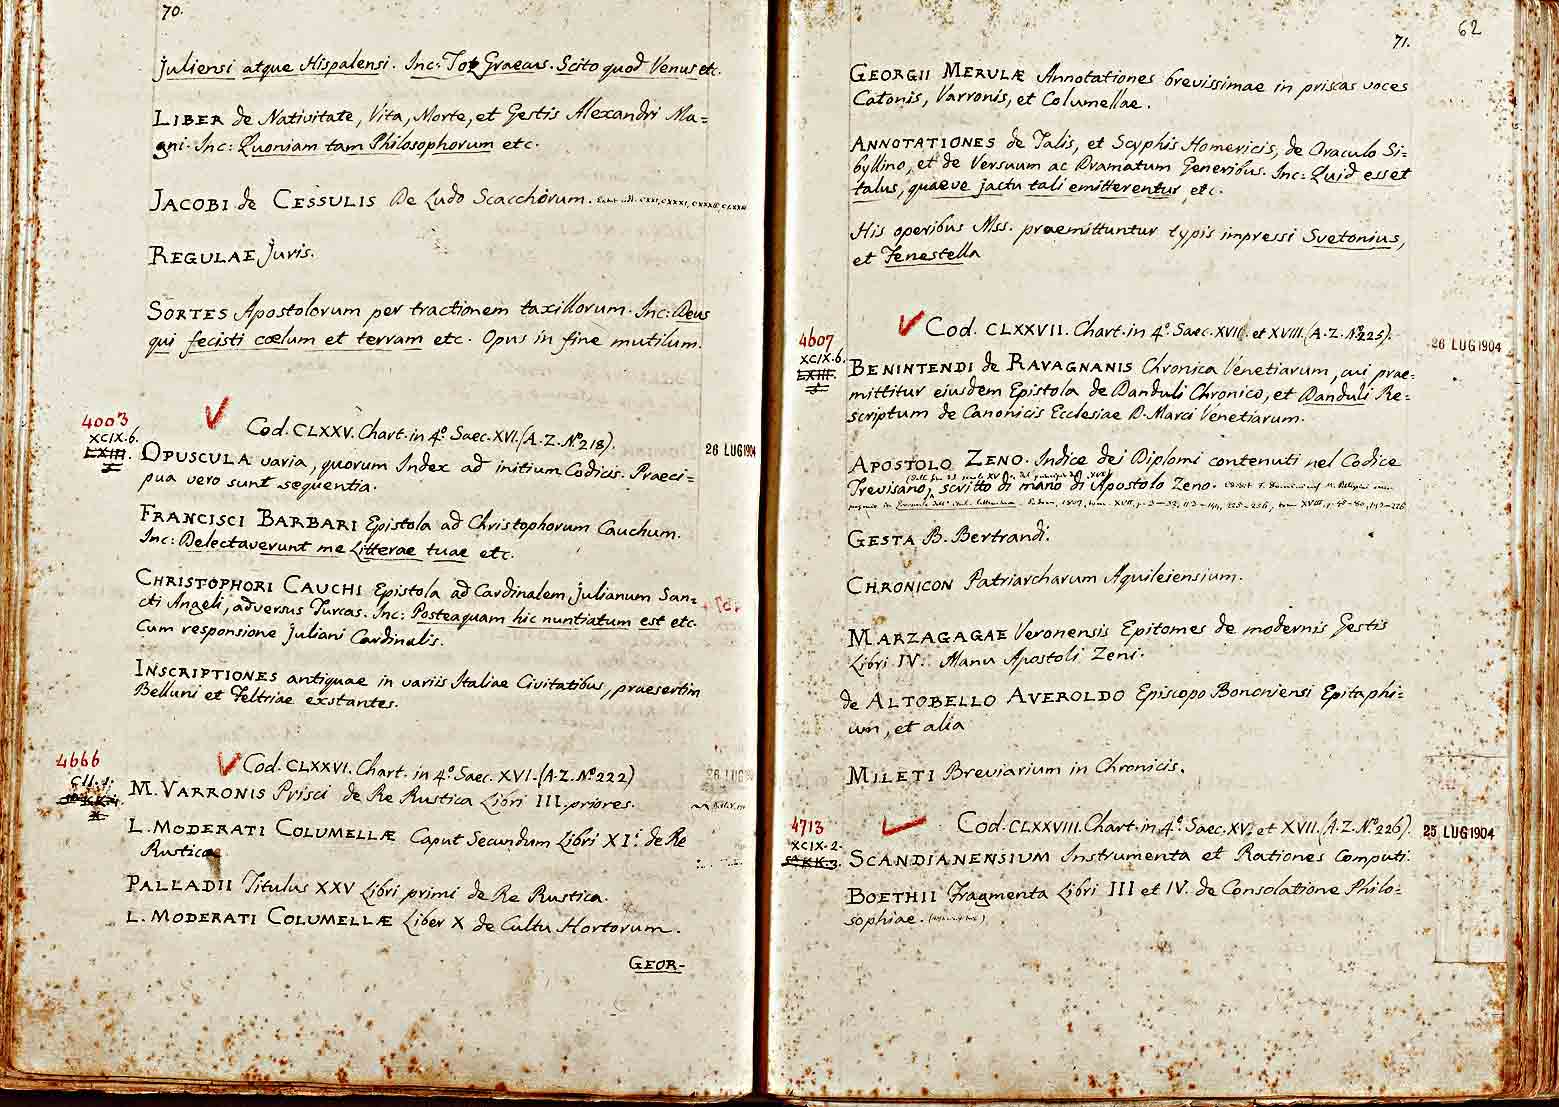 70.
Juliensi atque Hispalensi. Inc: Tot Graecus. Scito quod Venus etc.
LIBER de Nativitate, Vita, Morte, et Gestis Alexandri Ma=
gni. Inc: Quoniam tam Philosophorum etc.
JACOBI de CESSULIS De Ludo Scacchorum.
REGULAE Juris.
SORTES Apostolorum per tractionem taxillorum. Inc: Deus
qui fecisti cœlum et terram etc. Opus in fine mutilum.
4003
XCIX.6.
LXIII.
Cod. CLXXV. Chart. in 4º. Saec. XVI. (A.Z. Nº. 218).
26 LUG 1904
OPUSCULA varia, quorum Index ad initium Codicis. Praeci=
pua vero sunt sequentia.
FRANCISCI BARBARI Epistola ad Christophorum Cauchum.
Inc: Delectaverunt me Litterae tuae etc.
CHRISTOPHORI CAUCHI Epistola ad Cardinalem Julianum San=
cti Angeli, adversus Turcas. Inc: Posteaquam hic nuntiatum est etc.
Cum responsione Juliani Cardinalis.
INSCRIPTIONES antiquae in variis Italiae Civitatibus, praesertim
Belluni et Feltriae exstantes.
4666
CII.1.
Cod. CLXXVI. Chart. in 4º. Saec. XVI. (A.Z. Nº. 222)
26 LUG
M. VARRONIS Prisci de Re Rustica Libri III. priores.
L. MODERATI COLUMELLÆ Caput Secundum Libri XI.i de Re
Rustica
PALLADII Titulus XXV Libri primi de Re Rustica.
L. MODERATI COLUMELLÆ Liber X de Cultu Hortorum.
GEOR-
62
71.
GEORGII MERULÆ Annotationes brevissimae in priscas voces
Catonis, Varronis, et Columellae.
ANNOTATIONES de Talis, et Scyphis Homericis, de Oraculo Si=
byllino, et de Versuum ac Dramatum Generibus. Inc: Quid esset
talus, quaeve jactu tali emitterentur, etc.
His operibus Mss. praemittuntur typis impressi Svetonius,
et Fenestella
4607
XCIX.6.
LXIII.
Cod. CLXXVII. Chart. in 4º. Saec. XVII. et XVIII. (A.Z. Nº. 225).
26 LUG 1904
BENINTENDI de RAVAGNANIS Chronica Venetiarum, cui prae=
mittitur ejusdem Epistola de Danduli Chronico, et Danduli Re=
scriptum de Canonicis Ecclesiae D. Marci Venetiarum.
APOSTOLO ZENO. Indice dei Diplomi contenuti nel Codice
Trevisano, scritto di mano di Apostolo Zeno.
GESTA B. Bertrandi.
CHRONICON Patriarcharum Aquileiensium.
MARZAGAGAE Veronensis Epitomes de modernis Gestis
Libri IV. Manu Apostoli Zeni.
de ALTOBELLO AVEROLDO Episcopo Bononiensi Epitaphi=
um, et alia
MILETI Breviarium in Chronicis.
4713
XCIX.2.
Cod. CLXXVIII. Chart. in 4º. Saec. XV. et XVII. (A.Z. Nº. 226).
25 LUG 1904
SCANDIANENSIUM Instrumenta et Rationes Computi.
BOETHII Fragmenta Libri III et IV. de Consolatione Philo=
sophiae.